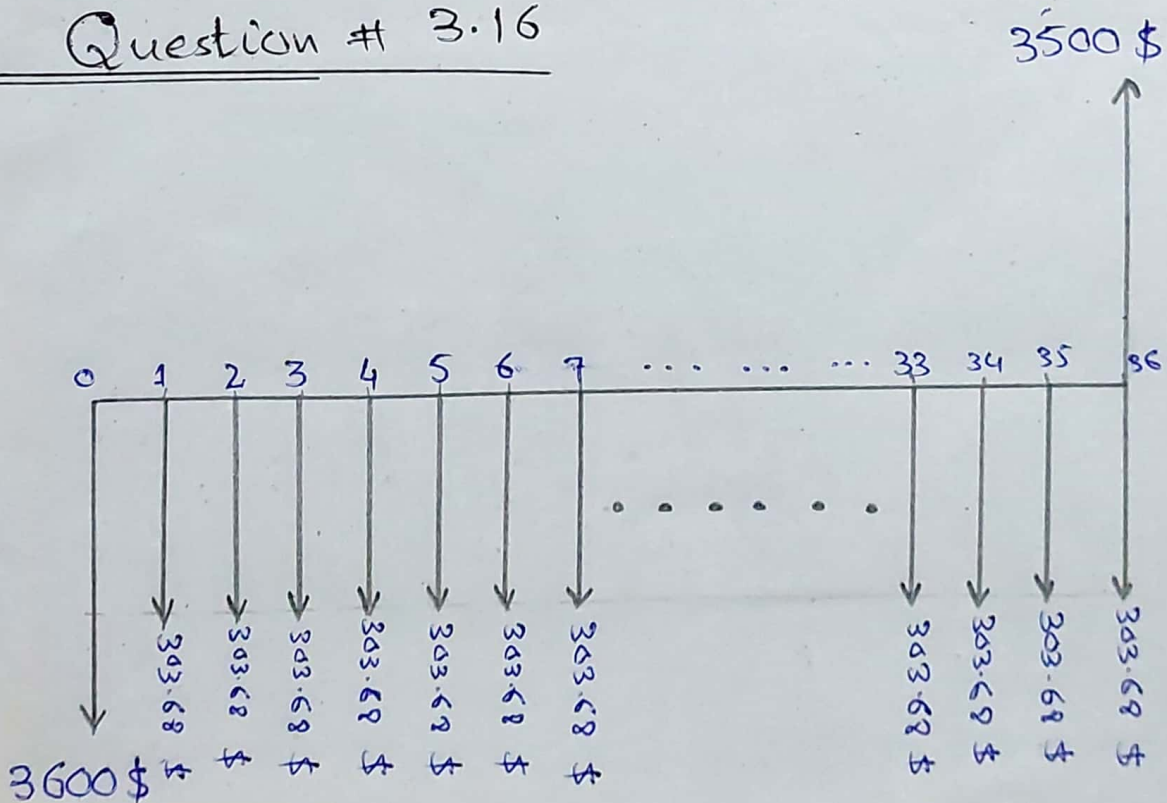 Question # 3.16
3500 $
0 1 2 3 4 5 6 7 .... ... ... 33 34 35 36
303.68 $ 303.68 $ 303.68 $ 303.68 $ 303.68 $ 303.68 $ 303.68 $ 303.68 $ 303.68 $ 303.68 $ 303.68 $
3600 $